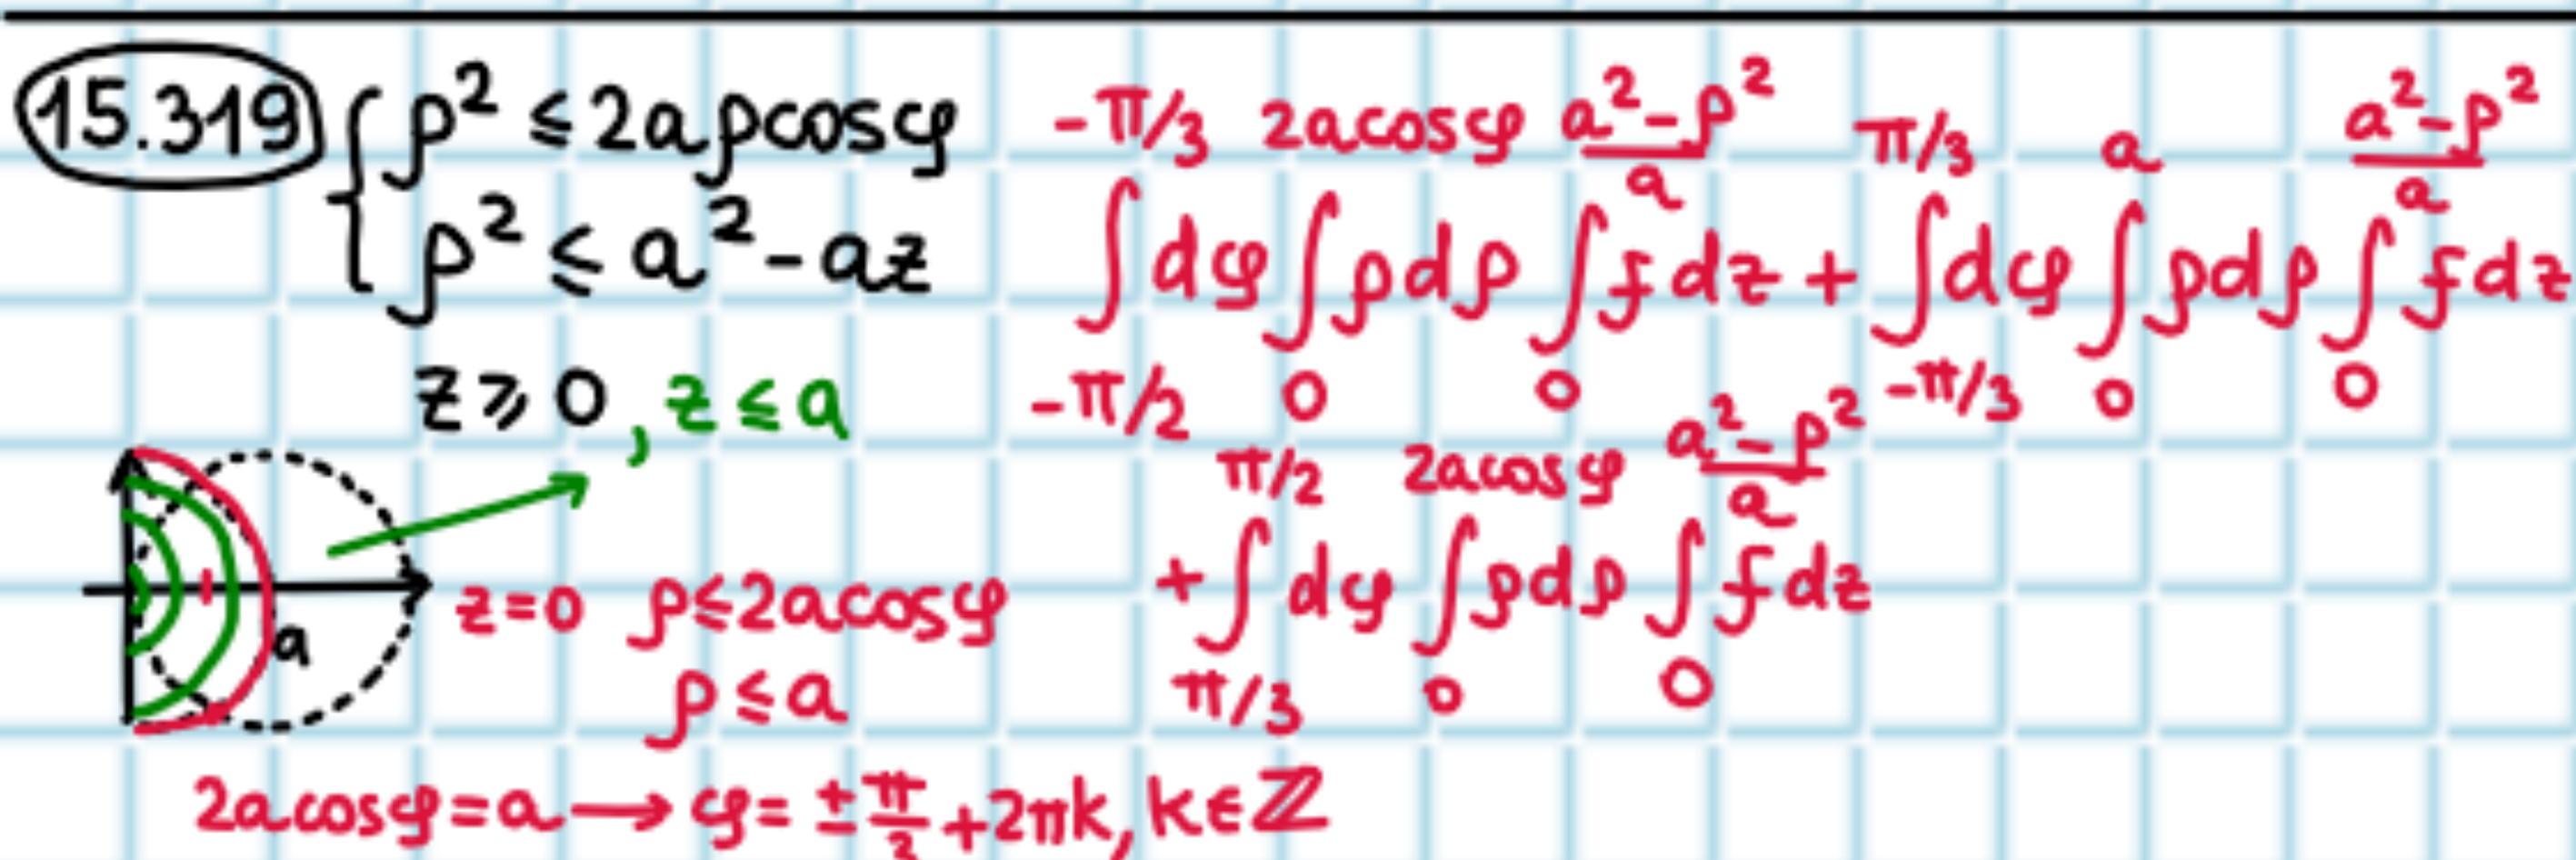 15.319 { ρ² ≤ 2aρcosφ
ρ² ≤ a² - az
z ≥ 0, z ≤ a
z=0 ρ≤2acosφ
ρ ≤ a
a
2acosφ=a → φ= ±π/3 + 2πk, k∈ℤ
∫_{-π/2}^{-π/3} dφ ∫_0^{2acosφ} ρdρ ∫_0^{(a²-ρ²)/a} f dz + ∫_{-π/3}^{π/3} dφ ∫_0^a ρdρ ∫_0^{(a²-ρ²)/a} f dz
+ ∫_{π/3}^{π/2} dφ ∫_0^{2acosφ} ρdρ ∫_0^{(a²-ρ²)/a} f dz